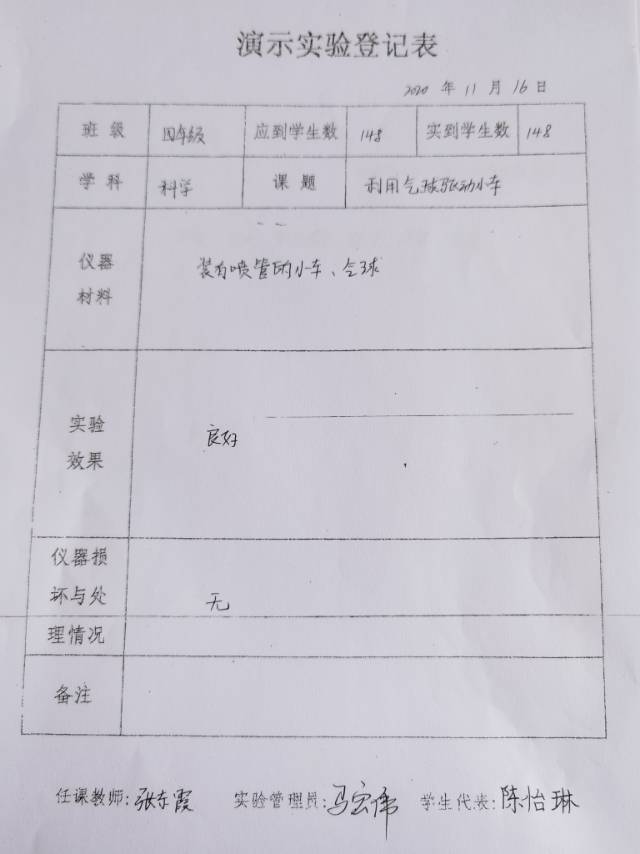 演示实验登记表
2020 年 11 月 16 日
班 级 四年级 应到学生数 148 实到学生数 148
学 科 科学 课 题 利用气球驱动小车
仪器
材料
装有喷管的小车、气球
实验
效果
良好
仪器损
坏与处
理情况
无
备注
任课教师:张冬霞 实验管理员:马宏伟 学生代表:陈怡琳